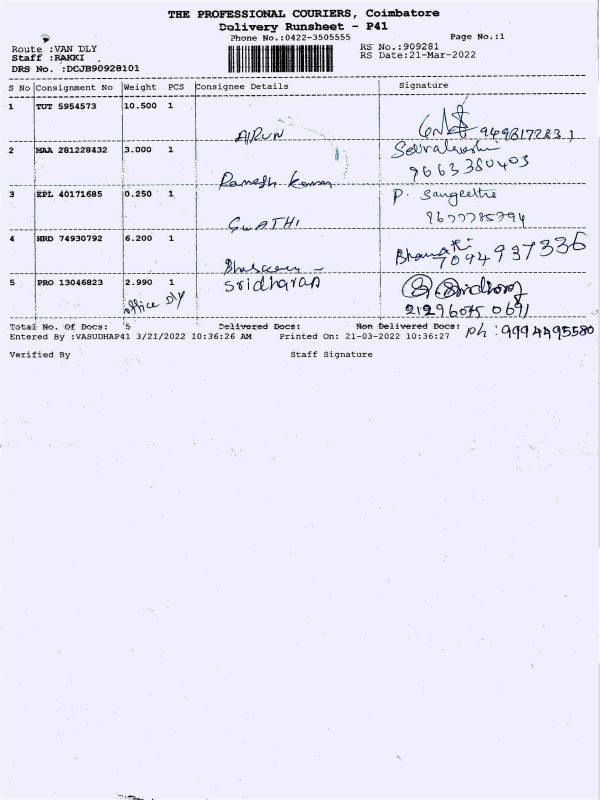 THE PROFESSIONAL COURIERS, Coimbatore
Delivery Runsheet - P41
Phone No.:0422-3505555
Page No.:1
Route :VAN DLY
RS No.:909281
Staff :RAKKI
RS Date:21-Mar-2022
DRS No. :DCJB90928101
S No Consignment No Weight PCS Consignee Details Signature
1 TUT 5954573 10.500 1
ARUN
2 MAA 281228432 3.000 1
9663380403
Ramesh Kumar
3 EPL 40171685 0.250 1 P. Sangeetha
SWATHI 9677785794
4 HRD 74930792 6.200 1
Bharathi 7094937336
5 PRO 13046823 2.990 1 sridharan
office Dly
Total No. Of Docs: 5 Delivered Docs: Non Delivered Docs:
Ph : 9994495580
Entered By :VASUDHAP41 3/21/2022 10:36:26 AM Printed On: 21-03-2022 10:36:27
Verified By Staff Signature